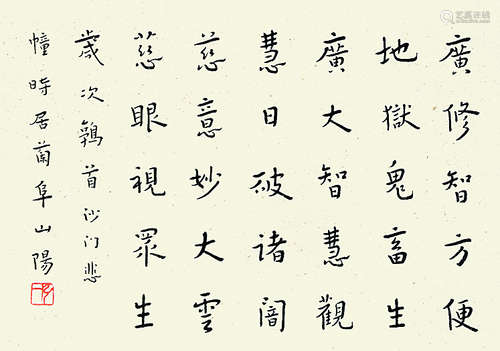 廣修智方便
地獄鬼畜生
廣大智慧觀
慧日破諸闇
慈意妙大雲
慈眼視眾生
歲次鶉首沙门悲
幢時居蘭阜山陽